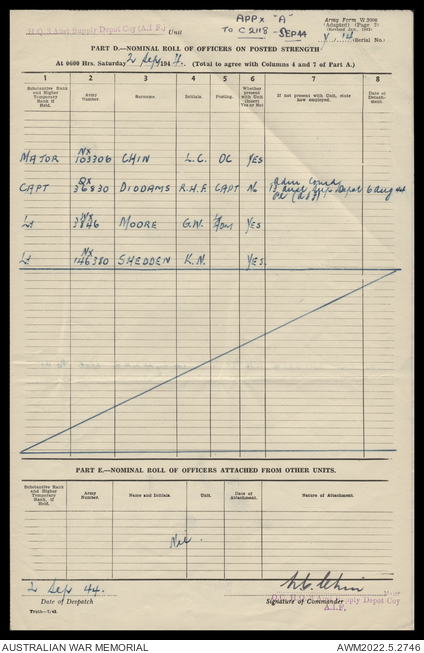 H.Q. 3 Aust Supply Depot Coy (A.I.F.) Unit
APPX "A"
TO C2118 SEP44
Army Form W.3008
(Adapted) (Page 7)
(Serial No.)
PART D.—NOMINAL ROLL OF OFFICERS ON POSTED STRENGTH
At 0600 Hrs. Saturday 2 Sep 1944. (Total to agree with Columns 4 and 7 of Part A.)
1 2 3 4 5 6 7 8
Substantive Rank and Higher Temporary Rank if Held. Army Number. Surname. Initials. Posting. Whether present with Unit (Insert Yes or No) If not present with Unit, state how employed. Date of Detachment.
MAJOR NX 103306 CHIN L.C. OC YES
CAPT QX 36830 DIDDAMS R.H.F. CAPT No Adm Comd 6 Aug 44
Lt 3846 MOORE G.W. Adm YES
Lt NX 146380 SHEDDEN K.N. YES
PART E.—NOMINAL ROLL OF OFFICERS ATTACHED FROM OTHER UNITS.
Substantive Rank and Higher Temporary Rank, if Held. Army Number. Name and Initials. Unit. Date of Attachment. Nature of Attachment.
Nil.
2 Sep 44.
Date of Despatch
Signature of Commander
Supply Depot Coy
A.I.F.
AUSTRALIAN WAR MEMORIAL
AWM2022.5.2746